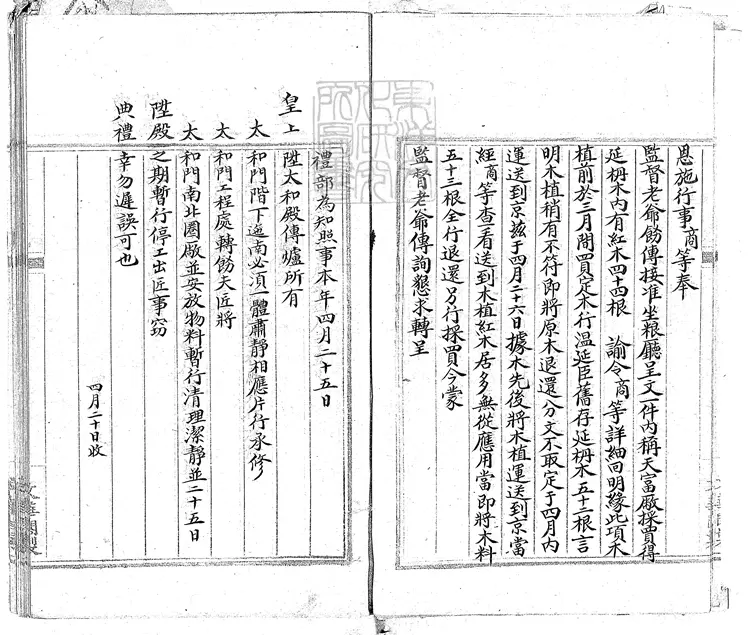 恩施行事商等奉
監督老爺飭傳接准坐粮廳呈文一件內稱天富廠採買得
延枬木內有紅木四十四根 諭令商等詳細回明緣此項木
植前於三月間四買定木行温延臣舊存延枬木五十三根言
明木植稍有不符即將原木退還分文不取定于四月內
運送到京兹于四月二十六日據木先後將木植運送到京當
經商等查看送到木植紅木居多無從應用當即將木料
五十三根全行退還另行採買今蒙
監督老爺傳詢懇求轉呈
禮部為知照事本年四月二十五日
皇上陞太和殿傳爐所有
太和門階下迤南必須一體肅靜相應片行承修
太和門工程處轉飭天匠將
太和門南北圈廠並安放物料暫行清理潔靜並二十五日
陞殿之期暫行停工出匠事窃
典禮幸勿遲誤可也
四月二十日收